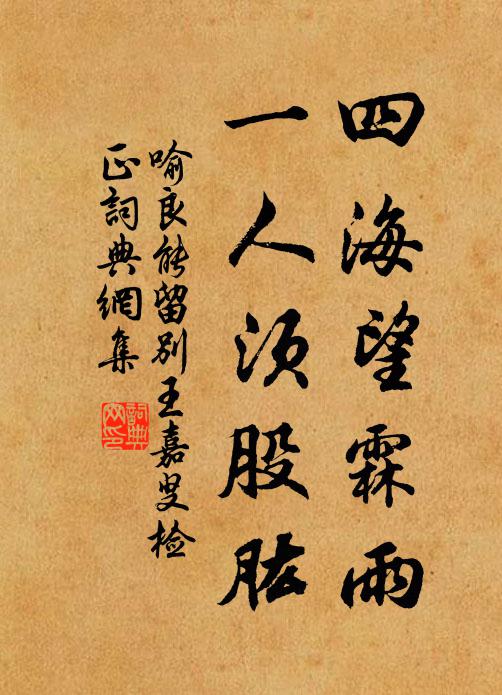 四海望霖雨
一人須股肱
喻良能留別王嘉叟檢
正詞典網集
詞典網印